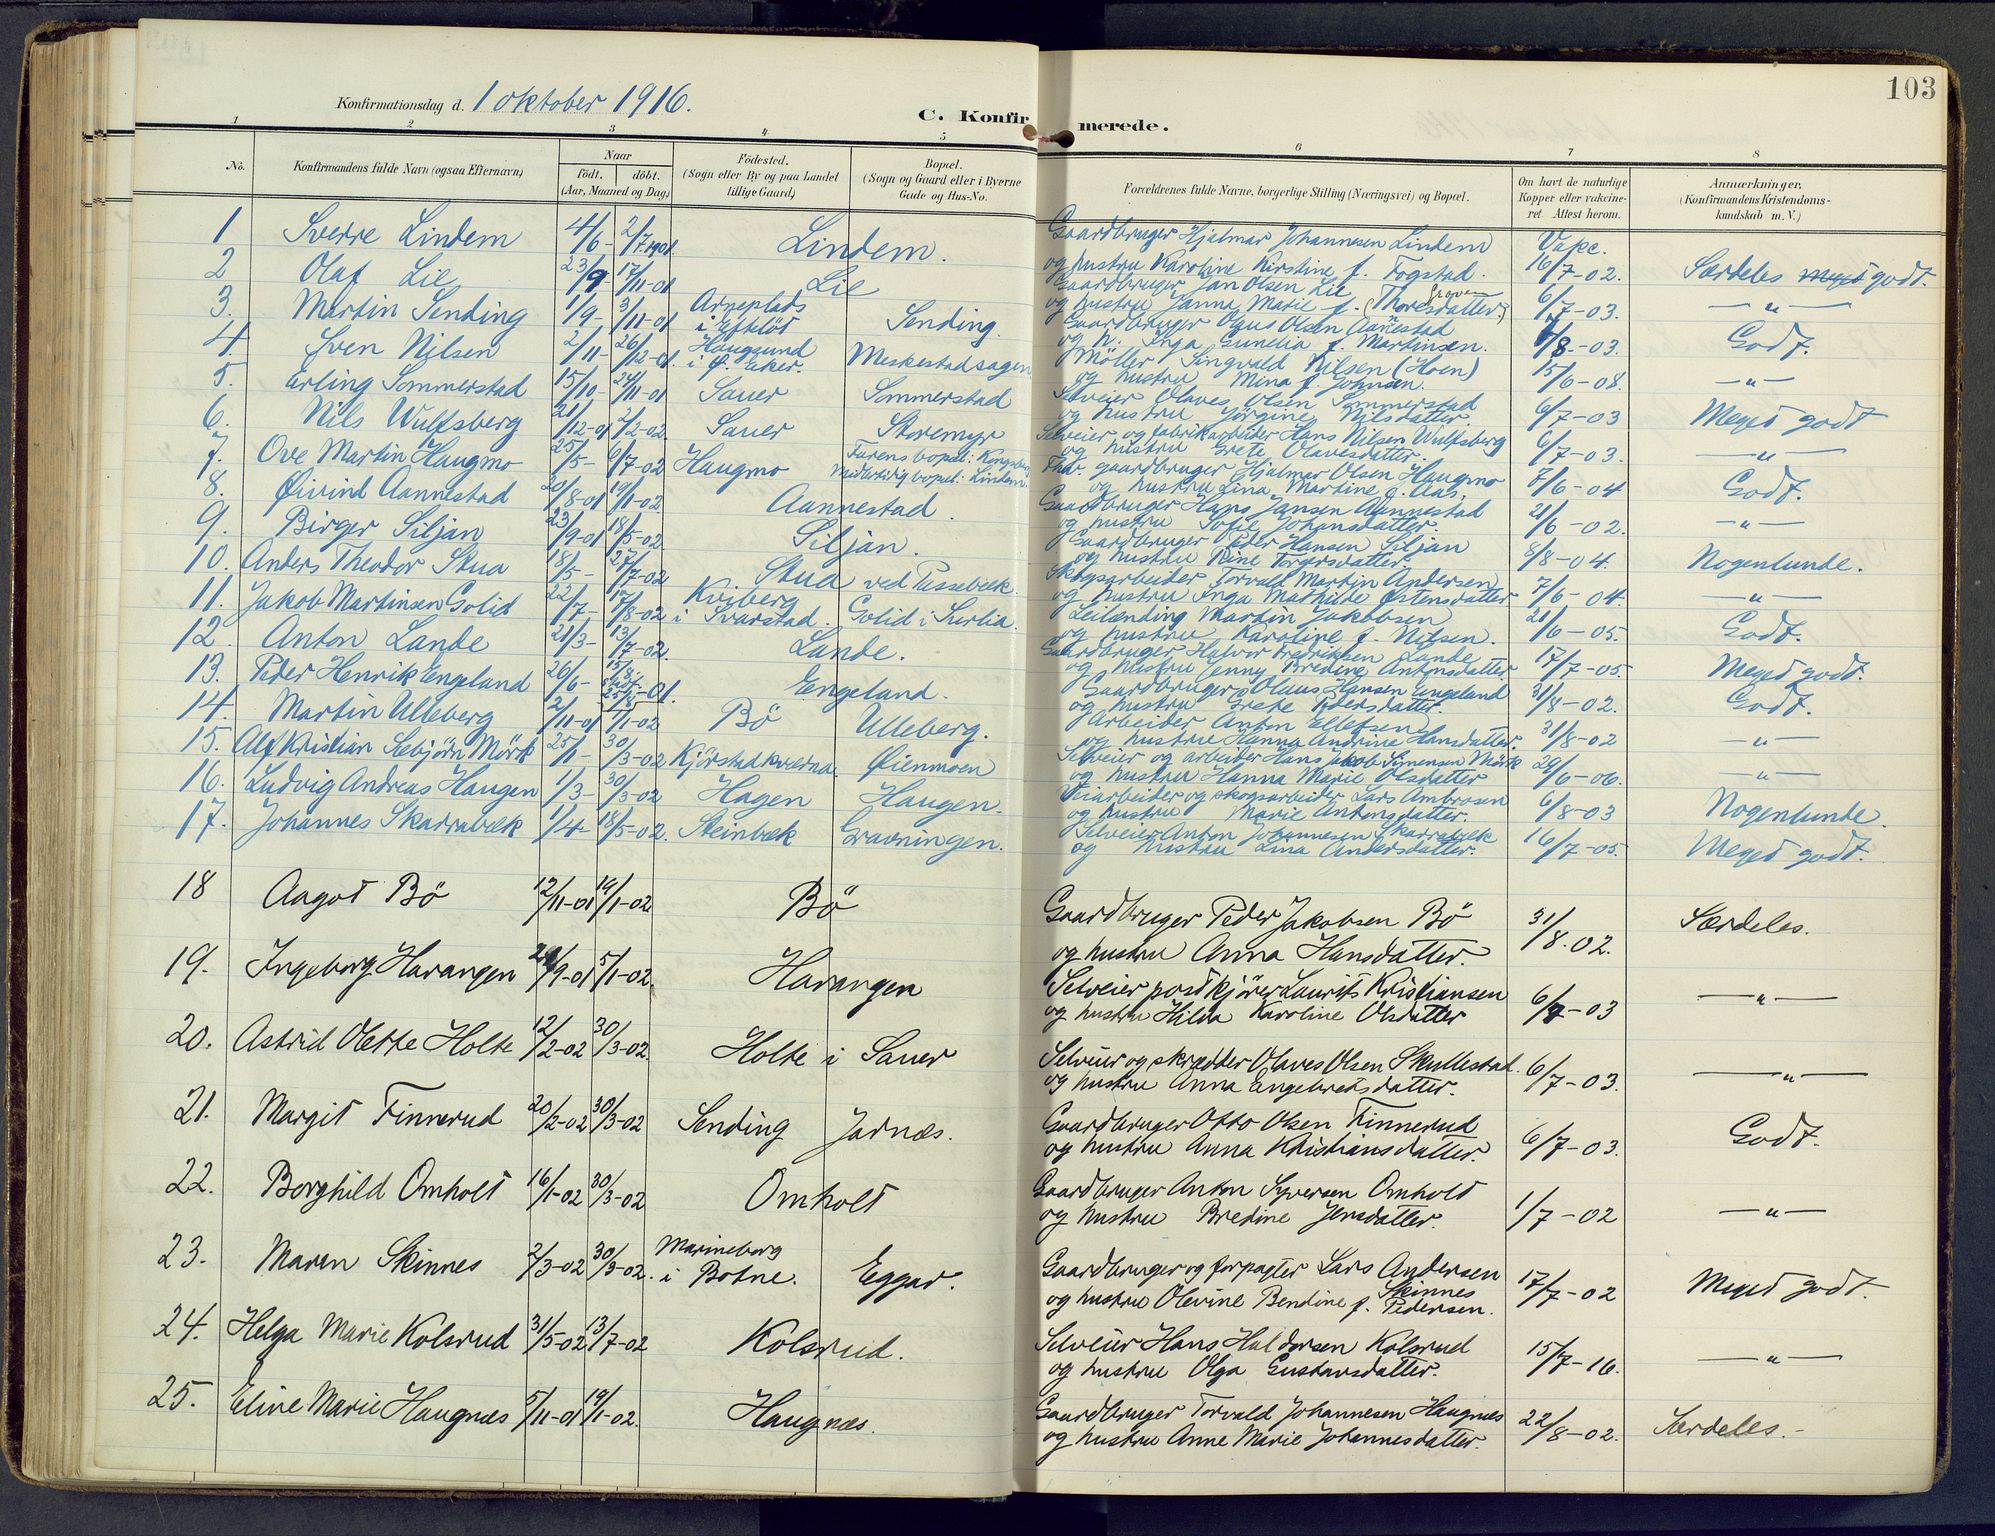 103
Konfirmationsdag d. 1 oktober 1916.
C. Konfirmerede.
1 2 3 4 5 6 7 8
No. Konfirmandens fulde Navn (ogsaa Efternavn) Naar födt. döbt. (Aar, Maaned og Dag) Födested. (Sogn eller By og paa Landet tillige Gaard) Bopæl. (Sogn og Gaard eller i Byerne Gade og Hus-No. Forældrenes fulde Navne, borgerlige Stilling (Næringsvei) og Bopæl. Om havt de naturlige Kopper eller vakcineret. Attest herom. Anmærkninger. (Konfirmandens Kristendomskundskab m. V.)
1 Sverre Lindem 4/6- 2/7 1901 Lindem. Gaardbruger Hjalmar Johannesen Lindem Vakc.
og hustru Karoline Kirstine f. Fogstad. 16/7-02. Særdeles meget godt.
2 Olaf Lie 23/9- 17/11-01 Lie Gaardbruger Jan Olsen Lie
og hustru Janna Marie f. (Thoresdatter) Groven 6/7-03. —"—
3. Martin Sending 1/9- 3/11-01 Arneplads i Efteløt Sending. Gaardbruger Olaus Olsen Aannestad
og h. Inga Gunelia f. Martinsen. 6/8-03. Godt.
4. Sven Nilsen 2/11- 26/12-01. Haugsund i Ø. Eker. Meskestadsagen Möller Singvald Nilsen (Hoen)
og hustru Mina f. Johnsen. 15/6-08. —"—
5. Erling Sommerstad 15/10- 24/11-01 Sauer Sommerstad Selveier Olaves Olsen Sommerstad
og hustru Jörgine Nilsdatter 6/7-03 Meget godt
6. Nils Wulfsberg 21/12-01 2/2-02 Sauer Storemyr Selveier og fabrikarbeider Hans Nilsen Wulfsberg
og hustru Grete Olavesdatter. 6/7-03. —"—
7. Ove Martin Haugmo 25/5- 6/7-02 Haugmo Farens bopæl: Kongsberg Midlertidig bopæl: Lindem. Fhv. gaardbruger Hjalmar Olsen Haugmo
og hustru Lina Martine f. Aas. 7/6-04 Godt.
8. Øivind Aannestad 20/8-01 19/1-02 Aannestad. Gaardbruger Hans Jansen Aannestad
og hustru Sofie Johansdatter. 21/6-02. —"—
9. Birger Siljan 23/9-01 18/5-02 Siljan. Gaardbruger Peder Hansen Siljan
og hustru Rine Torgersdatter. 8/8-04. Nogenlunde.
10. Anders Theodor Stua 18/5- 27/7-02 Stua ved Passebæk. Skogsarbeider Torvald Martin Andersen
og hustru Inga Mathilde Østensdatter 7/6-04. —"—
11. Jakob Martinsen Golid 22/7- 17/8-02 Kviberg i Svarstad. Golid i Surlia. Leilænding Martin Jakobsen
og hustru Karoline f. Nilsen. 21/6-05. Godt.
12. Anton Lande 21/3- 13/7-02. Lande. Gaardbruger Halvor Fredriksen Lande
og hustru Jenny Bredine Antonsdatter. 17/7-05. Meget godt.
13. Peder Henrik Engeland 26/6- 25/8-01. Engeland. Gaardbruger Olaus Hansen Engeland
og hustru Grete Pedersdatter. 31/8-02. Godt.
14. Martin Ulleberg 2/11-01 1/1-02 Bö Ulleberg. Arbeider Anton Ellefsen
og hustru Hanna Andrine Hansdatter. 31/8-02 —"—
15. Alf Kristian Sebjörn Mörk 25/1- 30/3-02 Kjörstadkværna Øienmoen Selveier og arbeider Hans Jakob Simensen Mörk
og hustru Hanna Marie Olsdatter 29/6-06. —"—
16. Ludvig Andreas Haugen 1/3- 30/3-02 Hagen Haugen. Veiarbeider og skogsarbeider Lars Ambrosen
og hustru Marie Antonsdatter. 6/8-03 Nogenlunde.
17. Johannes Skarrabæk 1/4- 18/5-02. Steinbæk Gravningen. Selveier Anton Johannesen Skarrabæk
og hustru Lina Andersdatter. 16/7-05. Meget godt.
18 Aagot Bö 12/11-01 19/1-02 Bö Gaardbruger Peder Jakobsen Bö
og hustru Anna Hansdatter. 31/8.02. Særdeles.
19. Ingeborg Harangen 24/9-01 5/1-02. Harangen Selveier postkjörer Laurits Kristiansen
og hustru Hilda Karoline Olsdatter 6/7-03 —"—
20. Astrid Olette Holte 12/2-02 30/3-02. Holte i Sauer Selveier og skrædder Olaves Olsen Skullestad.
og hustru Anna Engebretsdatter. 6/7-03. —"—
21. Margit Finnerud 20/2-02 30/3-02 Sending Jarnæs. Gaardbruger Otto Olsen Finnerud
og hustru Anna Kristiansdatter. 6/7-03. Godt.
22. Borghild Omholt 16/1-02 30/3-02 Omholt Gaardbruger Anton Syversen Omholt
og hustru Bredine Jensdatter. 1/7-02 —"—
23. Maren Skinnes 2/3-02 30/3-02. Marineborg i Botne. Eggar. Gaardbruger og forpagter Lars Andersen Skinnes
og hustru Olevine Bendine f. Pedersen. 17/7-02 Meget godt.
24. Helga Marie Kolsrud 31/5-02 13/7-02 Kolsrud. Selveier Hans Haldorsen Kolsrud
og hustru Olga Gustavsdatter. 15/7-16. —"—
25. Eline Marie Haugnæs 5/11-01 19/1-02. Haugnæs. Gaardbruger Torvald Johannesen Haugnæs
og hustru Anne Marie Johannesdatter. 22/8-02. Særdeles.-